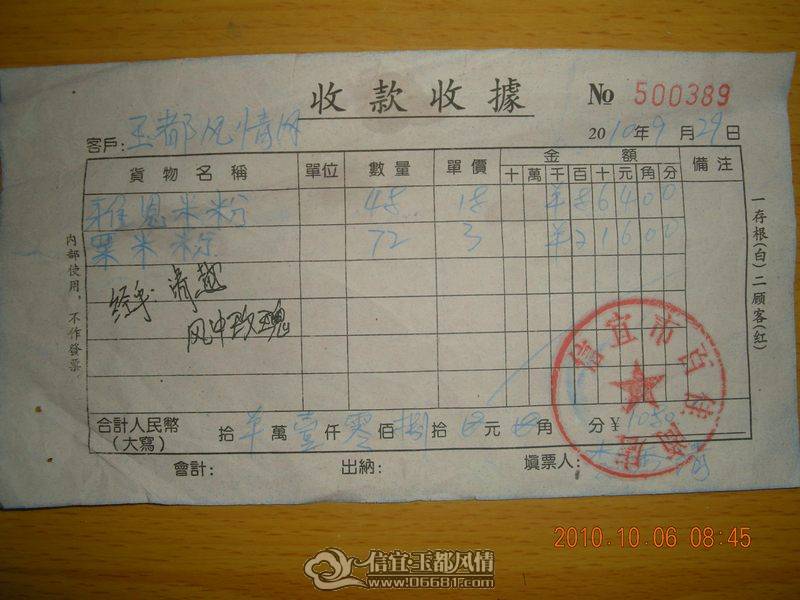 收款收據
№ 500389
客戶: 玉都风情网
2010年9月29日
貨物名稱 單位 數量 單價 金額 備注
十 萬 千 百 十 元 角 分
雅恩米粉 48 18 ¥ 8 6 4 0 0
粟米粉 72 3 ¥ 2 1 6 0 0
经手: 清越
风中玫瑰
合計人民幣
(大寫)
拾 ¥ 萬 壹 仟 零 佰 捌 拾 元 角 分 ¥ 1080
會計: 出納: 填票人:
內部使用,不作發票
一存根(白)二顧客(紅)
信宜市百佳商店
2010.10.06 08:45
信宜·玉都风情
www.06681.com